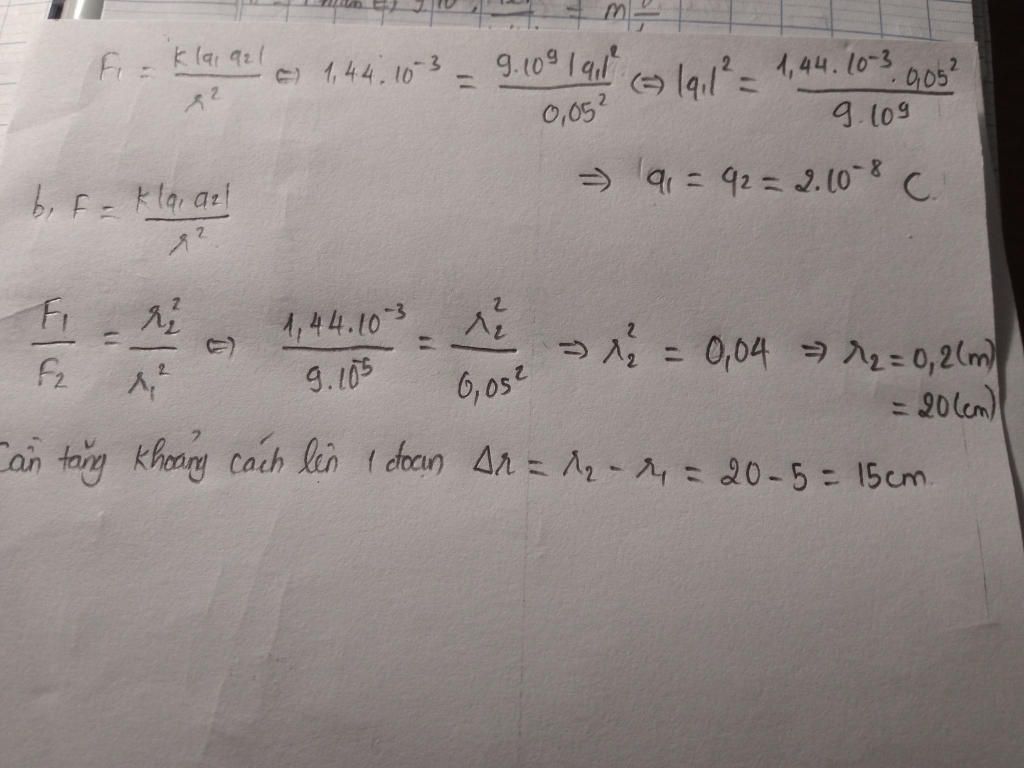 F₁ = k|q₁ q₂| / r² ⇔ 1,44.10⁻³ = 9.10⁹ |q₁|² / 0,05² ⇔ |q₁|² = 1,44.10⁻³ . 0,05² / 9.10⁹
⇒ q₁ = q₂ = 2.10⁻⁸ C.
b, F = k|q₁ q₂| / r²
F₁ / F₂ = r₂² / r₁² ⇔ 1,44.10⁻³ / 9.10⁻⁵ = r₂² / 0,05² ⇒ r₂² = 0,04 ⇒ r₂ = 0,2 (m)
= 20 (cm)
Cần tăng khoảng cách lên 1 đoạn Δr = r₂ - r₁ = 20 - 5 = 15cm.